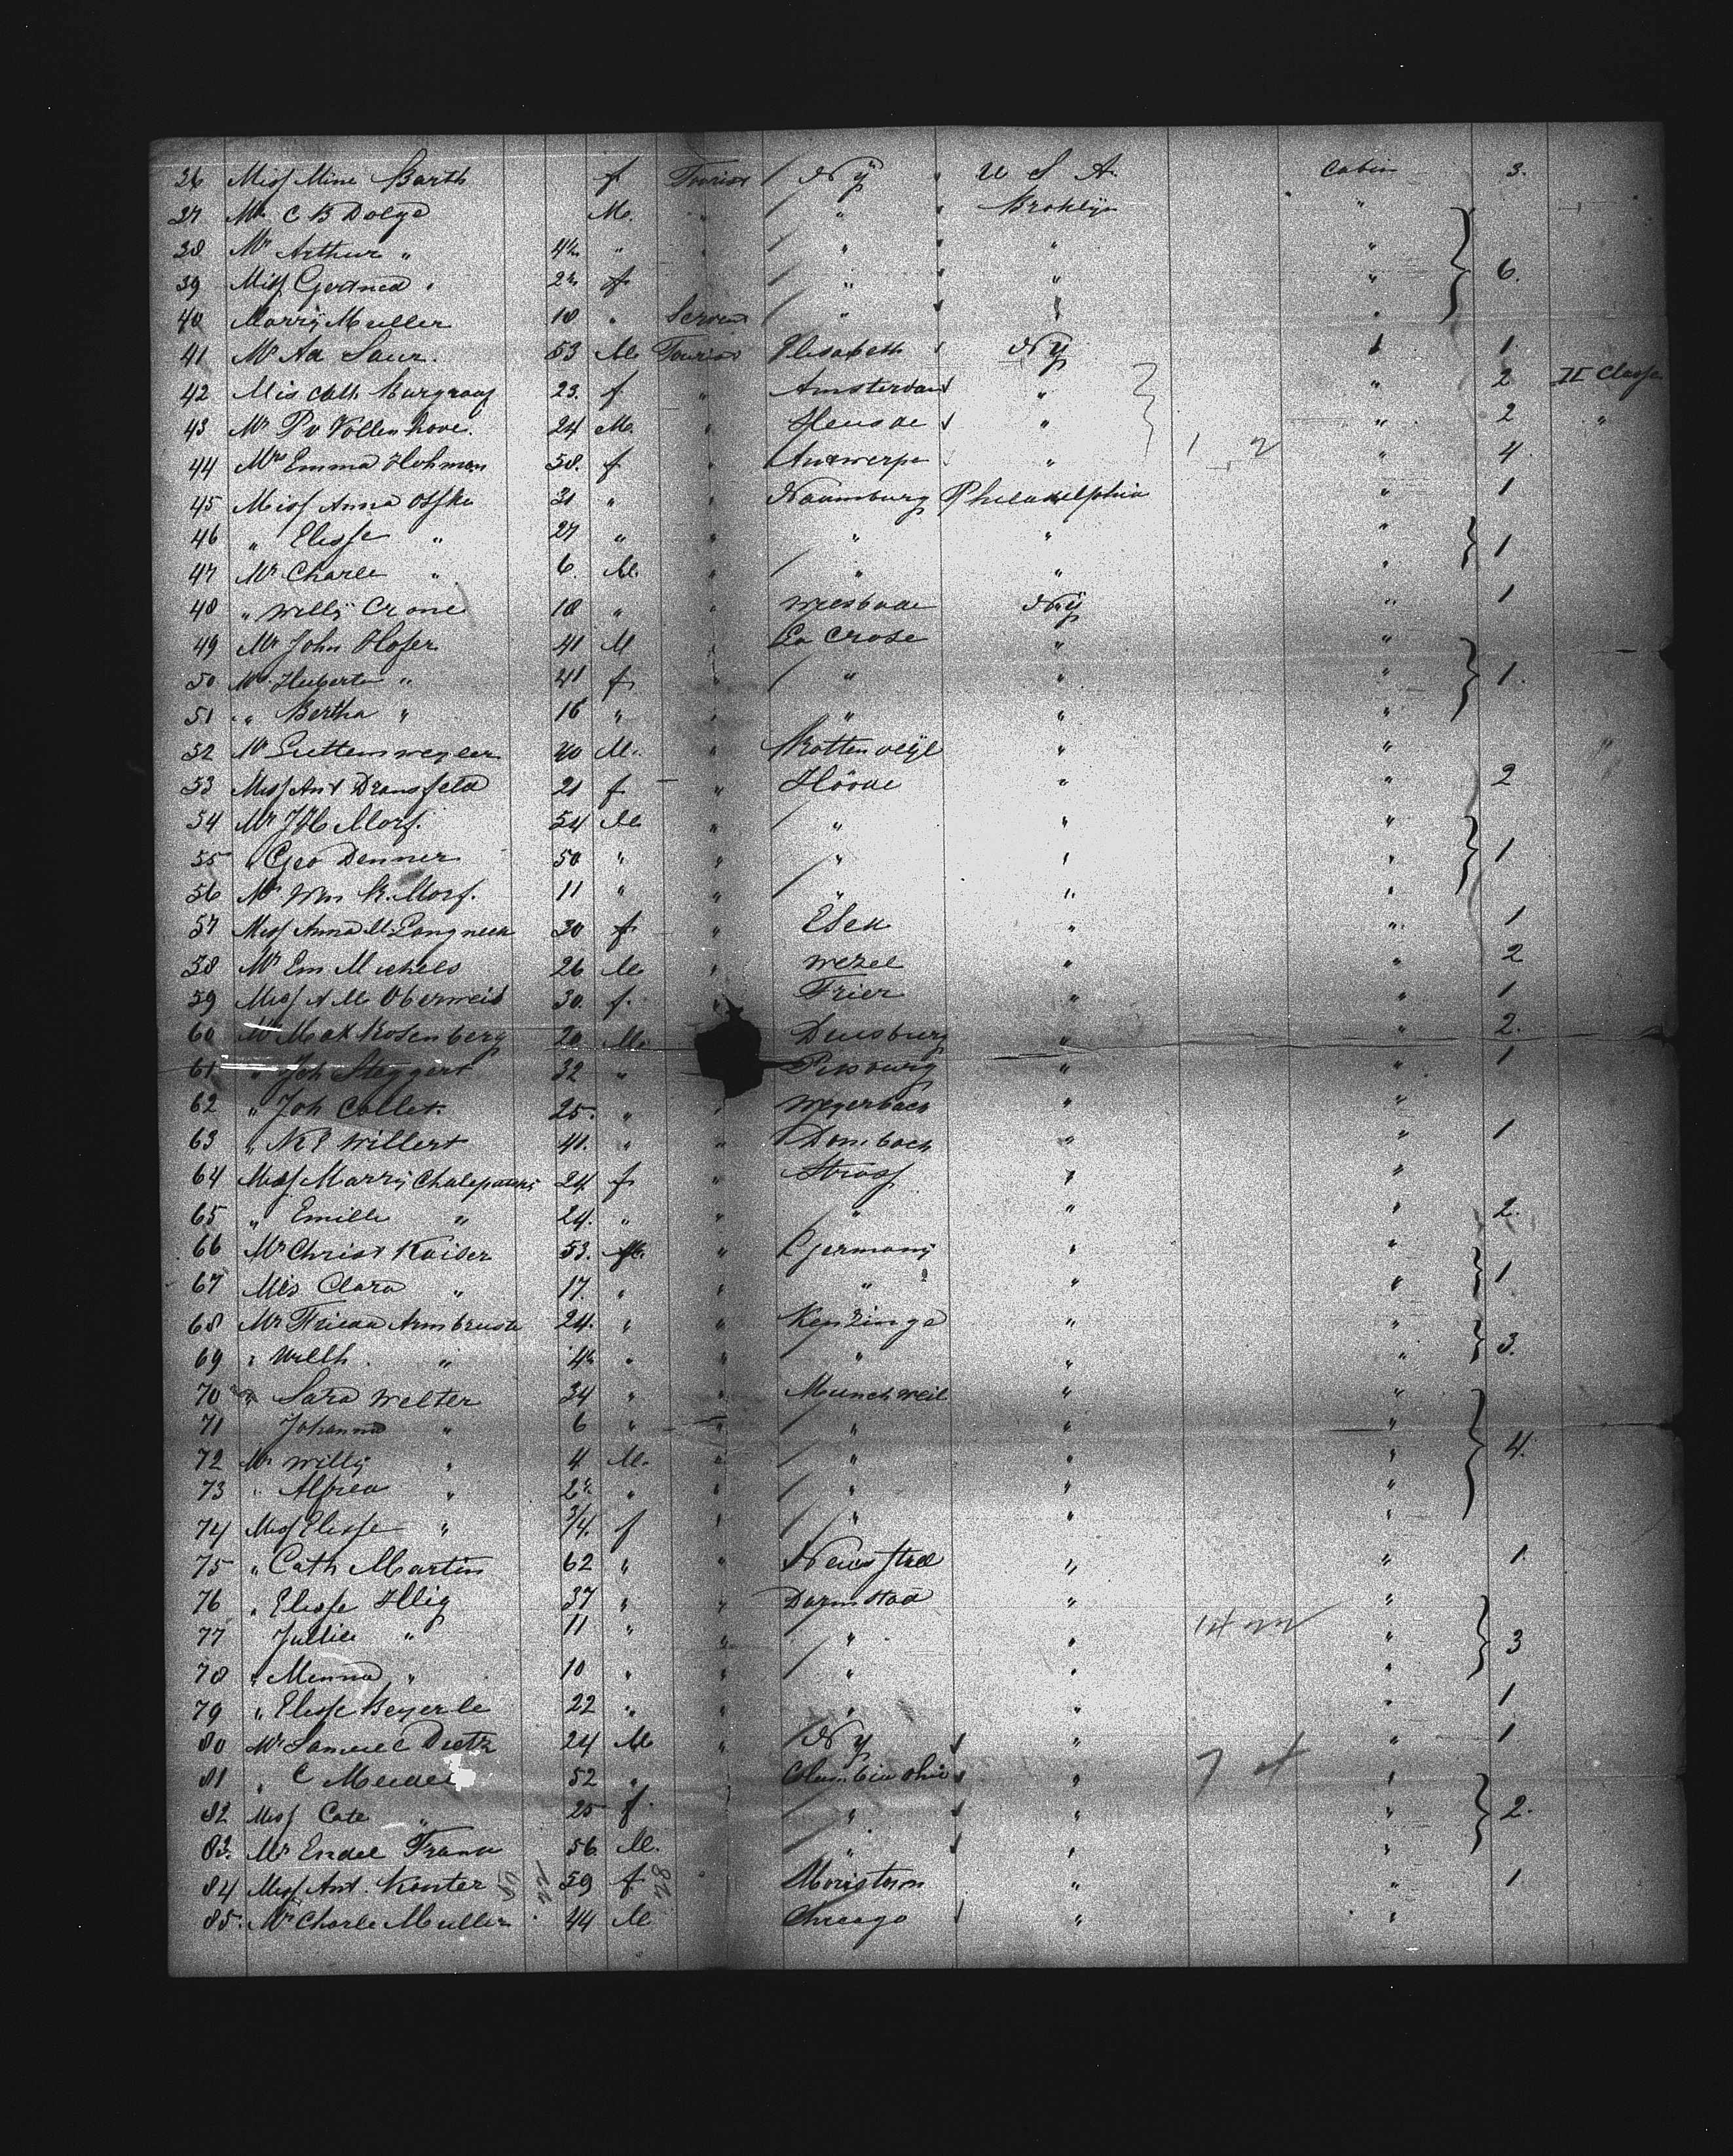 26 Miss Mine Barth f Tourist / N Y " U S A. Cabin 3.
27 Mr C B Dolge M. " / " " Broklyn "
28 Mr Arthur " 4½ " " / " " " "
39 Miss Gertrud " 2½ f / " " " " 6.
40 Marrij Muller 18 " Servant / " " "
41 Mr Ad Saur. 53 M Tourist Elisabeth N Y 1
42 Mis Cath Burgraaf 23. f " Amsterdam " " 2 II Classe
43 Mr P v Vollenhove. 24 M. " Heusde " " 2 "
44 Mrs Emma Hohman 58. f " Antwerpe " " 4.
45 Miss Anna Osske 31 " " Naumburg Philadelphia " 1
46 " Elisse " 27 " " " " "
47 Mr Charle " 6. M. " / " " " 1
48 " Willy Crone 18 " " Wiesbade N Y " 1
49 Mr John Hofer 41 M " La Crose " "
50 Mrs Huberta " 41 f " / " " " 1.
51 " Bertha " 16 " " " " "
52 Mr Guttenweyler 40 M. " Rottenveijl " " "
53 Miss Ant Dransfeld 21 f " Hörde " " 2
54 Mr J H Morf. 54 M " / " " "
55 " Geo Denner 50 " " / " " " 1
56 Mr Wm R. Morf. 11 " " / " " "
57 Miss Anna M. Longneck 30 f " Esen " " 1
58 Mr Em Michels 26 M " Wezel " " 2
59 Miss A M Oberweis 30. f. " Trier " " 1
60 Mr Max Rosenberg 20 M. Duisburg " " 2.
61 " Joh Steggert 32 " " " 1
62 " Joh Collet. 25. " " Weyerbach " "
63 " N E Willert 41. " " Dombach " " 1
64 Miss Marrij 24 f " Strass " "
65 " Emille " 24. " " " " " 2.
66 Mr Christ Kaiser 53. M. " Germanij " "
67 Mis Clara " 17. " " " " " 1
68 Mr Frieda Armbruste 24. " " Kenzinge " "
69 " Willh. " 4½ " " " " " 3.
70 " Sara Welter 34 " " Munchweil " "
71 Johanna " 6 " " / " " "
72 Mr Willij " 4 M. " / " " " 4.
73 " Alfred " 2½ " " / " " "
74 Miss Elisse " 3/4. f " / " " "
75 " Cath Martin 62 " " Neustad " " 1
76 " Elisse Illig 37 " " Darmstad " "
77 Jullie " 11 " " / " " " 3
78 " Minna " 10 " " / " " "
79 " Elisse Beyerle 22 " " " " " 1
80 Mr Samuel Dietz 24 M " N Y " " 1
81 " C 52 " Columbia Ohio " "
82 Miss Cate " 25 f. / " " " 2.
83. Mr Endel Frank 56 M. / " " "
84 Miss Ant. Konter 59 f " Moristown " " 1
85. Mr Charle Muller 44 M Chicago " "